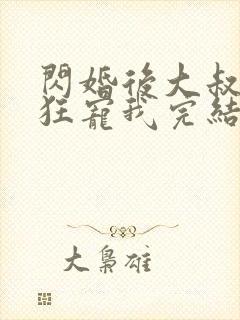 閃婚後大叔
狂寵我完結
大梟雄